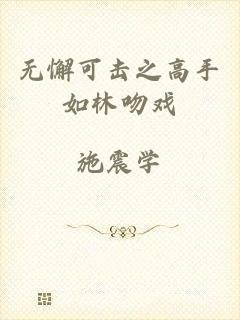 无懈可击之高手
如林吻戏
施震学